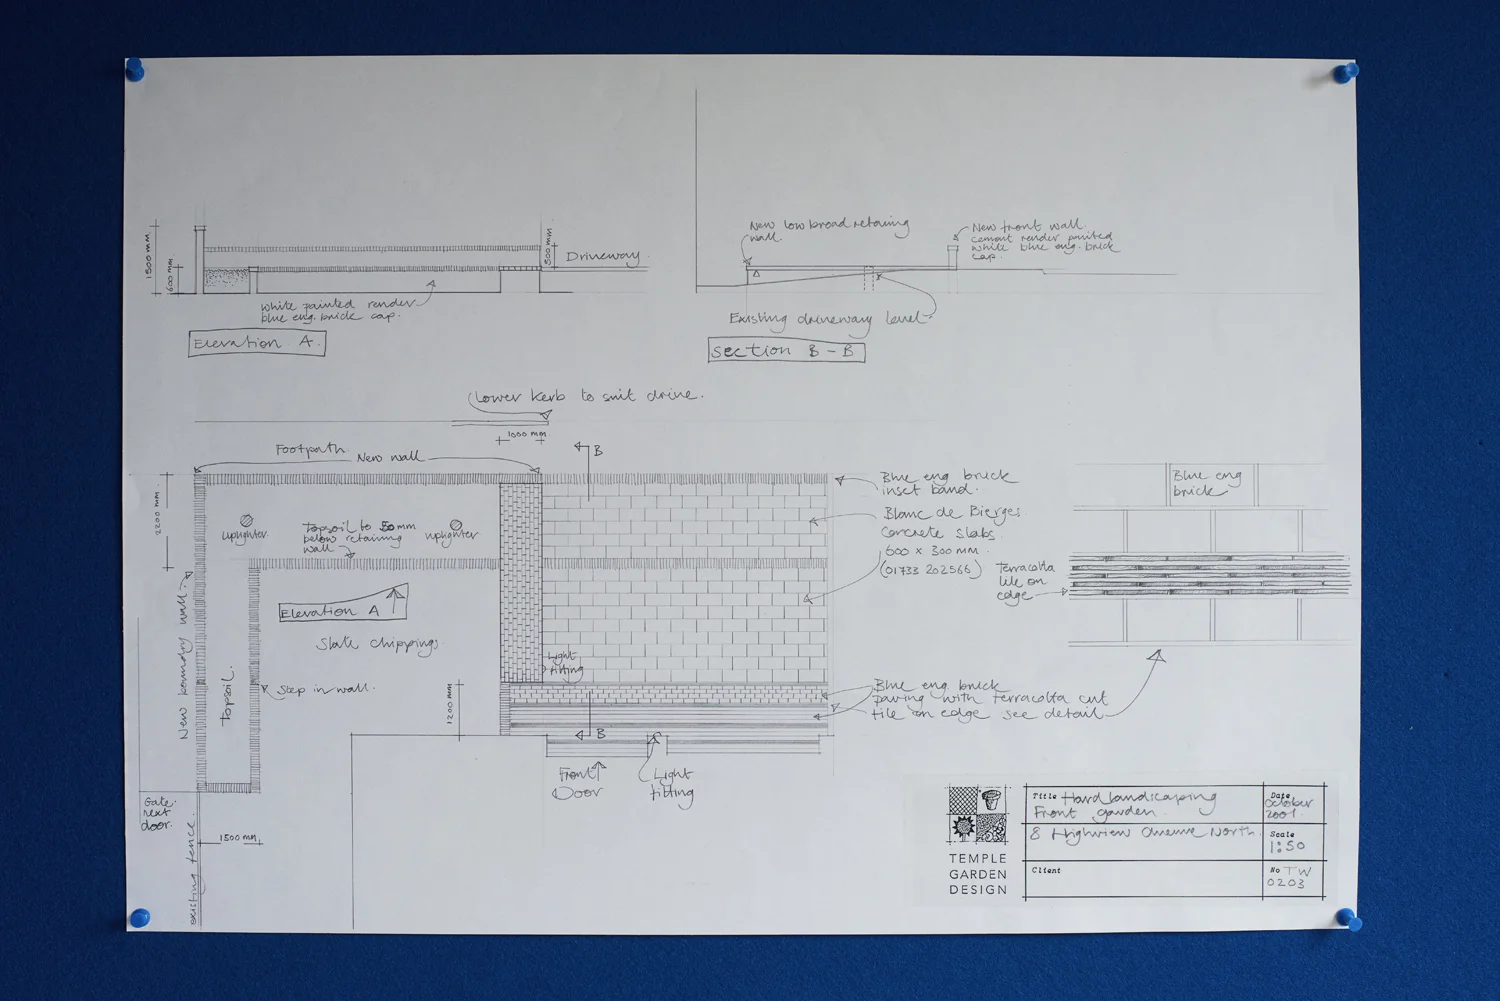 1500 mm
600 mm
500 mm
Driveway.
white painted render
blue eng. brick cap.
Elevation A.
New low broad retaining
wall.
New front wall.
cement render painted
white blue eng. brick
cap.
Existing driveway level.
Section B - B
Lower kerb to suit drive.
1000 mm
Footpath
New wall
B
2200 mm
Uplighter
Topsoil to 50mm
below retaining
wall
uplighter
Elevation A
Slate chippings.
New boundry wall.
Topsoil.
Step in wall.
Light
fitting
1200 mm
B
Front
Door
Light
fitting
Gate
next
door.
1500 mm
existing fence.
Blue eng brick
inset band.
Blanc de Bierges
Concrete slabs.
600 x 300 mm.
(01733 202566)
Blue eng
brick
Terracotta
tile on
edge
Blue eng. brick
paving with terracotta cut
tile on edge see detail
TEMPLE
GARDEN
DESIGN
Title Hard landscaping
Front garden.
8 Highview Avenue North.
Client
Date
October
2001.
Scale
1:50
No TW
0203